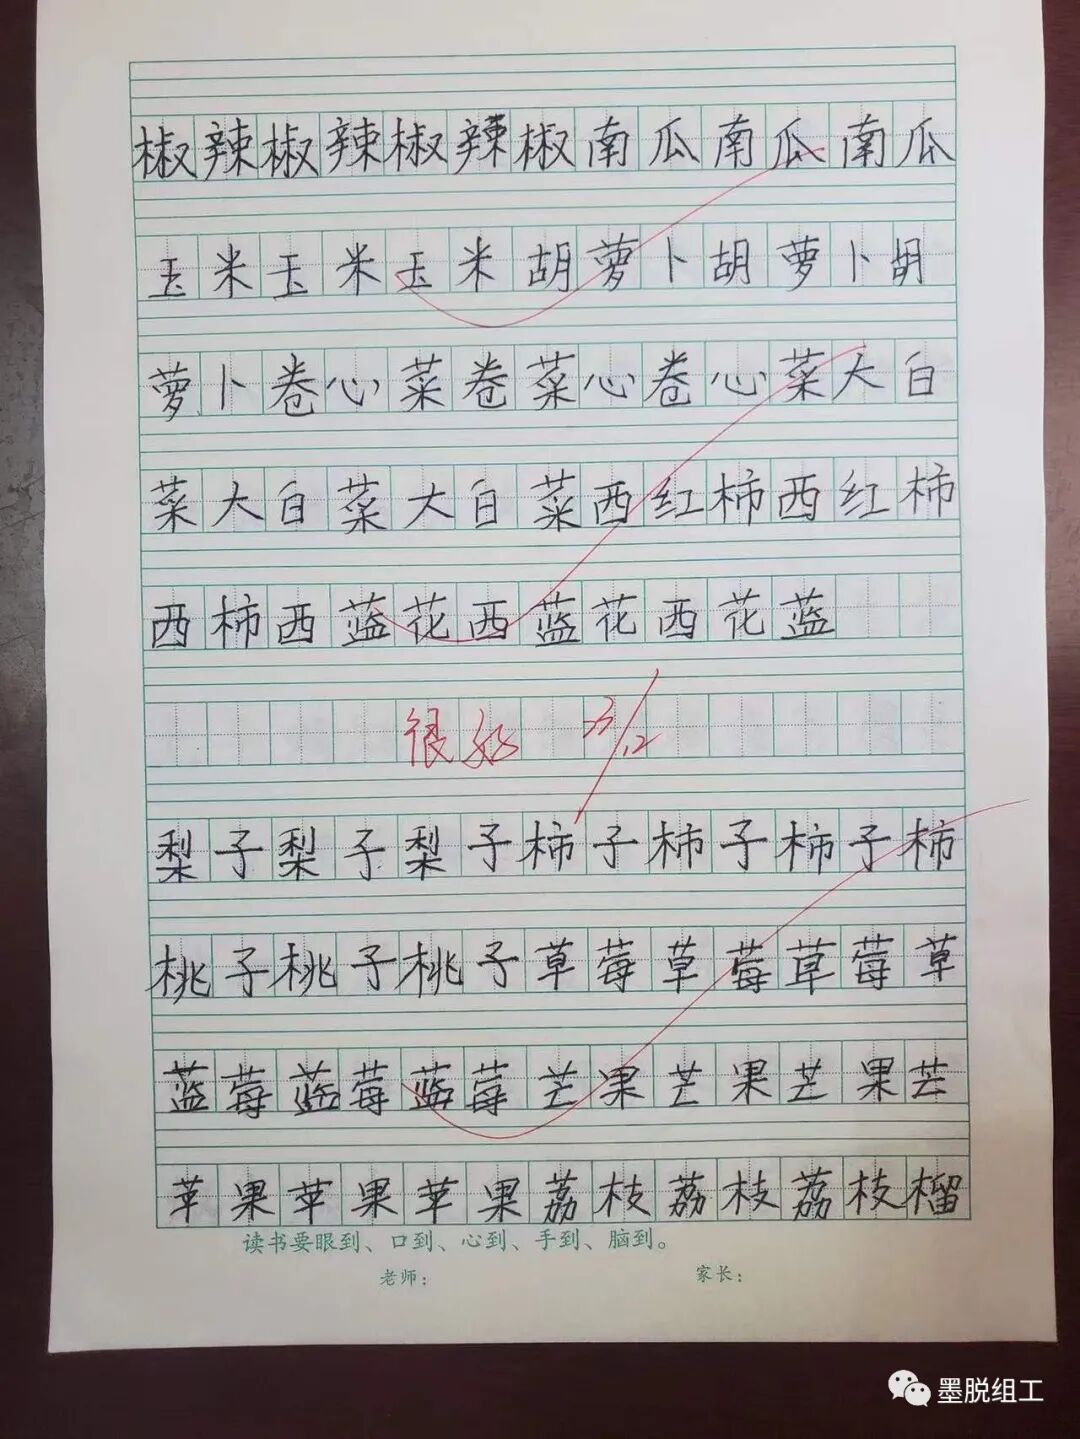 椒辣椒辣椒辣椒南瓜南瓜南瓜
玉米玉米玉米胡萝卜胡萝卜胡
萝卜卷心菜卷菜心卷心菜大白
菜大白菜大白菜西红柿西红柿
西柿西蓝花西蓝花西花蓝
很好
梨子梨子梨子柿子柿子柿子柿
桃子桃子桃子草莓草莓草莓草
蓝莓蓝莓蓝莓芒果芒果芒果芒
苹果苹果苹果荔枝荔枝荔枝榴
读书要眼到、口到、心到、手到、脑到。
老师： 家长：
墨脱组工